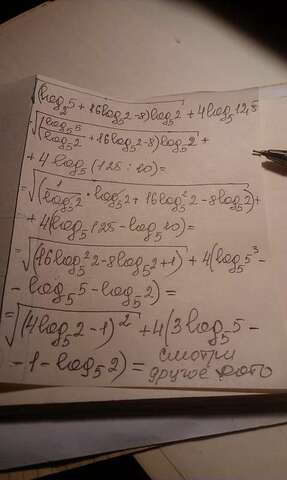 √(log₂5 + 16log₅2 - 8)log₅2 + 4log₅12,5
√(log₅5/log₅2 + 16log₅2 - 8)log₅2 +
+ 4log₅(125 : 10) =
= √(1/log₅2 · log₅2 + 16log₅²2 - 8log₅2) +
+ 4(log₅125 - log₅10) =
= √(16log₅²2 - 8log₅2 + 1) + 4(log₅5³ -
- log₅5 - log₅2) =
= √(4log₅2 - 1)² + 4(3log₅5 -
- 1 - log₅2) = смотри
другое фото